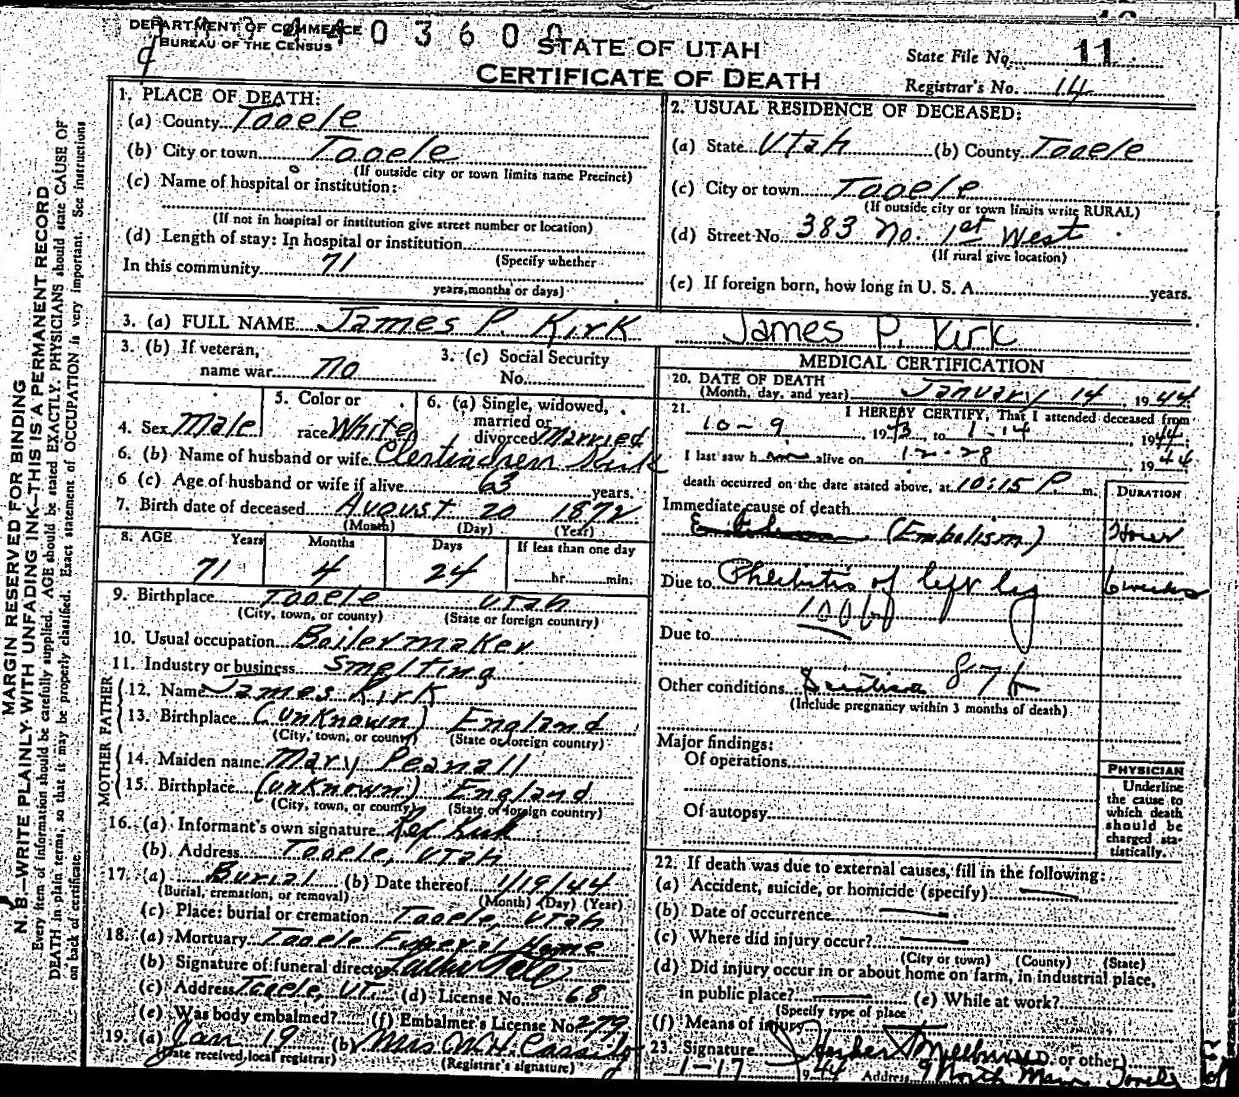 DEPARTMENT OF COMMERCE
BUREAU OF THE CENSUS
403600
STATE OF UTAH
CERTIFICATE OF DEATH
State File No. 11
Registrar's No. 14
MARGIN RESERVED FOR BINDING
N. B.—WRITE PLAINLY, WITH UNFADING INK—THIS IS A PERMANENT RECORD
Every item of information should be carefully supplied. AGE should be stated EXACTLY. PHYSICIANS should state CAUSE OF
DEATH in plain terms, so that it may be properly classified. Exact statement of OCCUPATION is very important. See instructions
on back of certificate.
1. PLACE OF DEATH:
(a) County Tooele
(b) City or town Tooele
(If outside city or town limits name Precinct)
(c) Name of hospital or institution:
(If not in hospital or institution give street number or location)
(d) Length of stay: In hospital or institution
(Specify whether
In this community 71
years, months or days)
2. USUAL RESIDENCE OF DECEASED:
(a) State Utah (b) County Tooele
(c) City or town Tooele
(If outside city or town limits write RURAL)
(d) Street No. 383 No. 1st West
(If rural give location)
(e) If foreign born, how long in U. S. A. years.
3. (a) FULL NAME James P. Kirk James P. Kirk
3. (b) If veteran,
name war no
3. (c) Social Security
No.
4. Sex Male
5. Color or
race White
6. (a) Single, widowed,
married or
divorced Married
6. (b) Name of husband or wife Kirk
6 (c) Age of husband or wife if alive 63 years.
7. Birth date of deceased August 20 1872
(Month) (Day) (Year)
8. AGE Years Months Days If less than one day
71 4 24 hr. min.
9. Birthplace Tooele Utah
(City, town, or county) (State or foreign country)
10. Usual occupation Boilermaker
11. Industry or business Smelting
FATHER
12. Name James Kirk
13. Birthplace (unknown) England
(City, town, or county) (State or foreign country)
MOTHER
14. Maiden name Mary
15. Birthplace (unknown) England
(City, town, or county) (State or foreign country)
16. (a) Informant's own signature Kirk
(b) Address Tooele, Utah
17. (a) Burial (b) Date thereof 1/19/44
(Burial, cremation, or removal) (Month) (Day) (Year)
(c) Place: burial or cremation Tooele, Utah
18. (a) Mortuary Tooele Funeral Home
(b) Signature of funeral director
(c) Address Tooele, Ut. (d) License No. 68
(e) Was body embalmed? (f) Embalmer's License No. 279
19. (a) Jan 19 (b) Mrs. W.H. Cassity
(Date received, local registrar) (Registrar's signature)
MEDICAL CERTIFICATION
20. DATE OF DEATH
(Month, day, and year) January 14, 1944
21. I HEREBY CERTIFY, That I attended deceased from
10-9, 1943, to 1-14, 1944
I last saw him alive on 12-28, 1944
death occurred on the date stated above, at 10:15 P. m.
DURATION
Immediate cause of death
(Embolism) Hour
Due to Phlebitis of left leg 6 weeks
100
Due to
Other conditions 87b
(Include pregnancy within 3 months of death)
Major findings:
Of operations
Of autopsy
PHYSICIAN
Underline
the cause to
which death
should be
charged sta-
tistically.
22. If death was due to external causes, fill in the following:
(a) Accident, suicide, or homicide (specify)
(b) Date of occurrence
(c) Where did injury occur?
(City or town) (County) (State)
(d) Did injury occur in or about home on farm, in industrial place,
in public place? (e) While at work?
(Specify type of place
(f) Means of injury
23. Signature or other)
1-17 1944 Address North Main Tooele